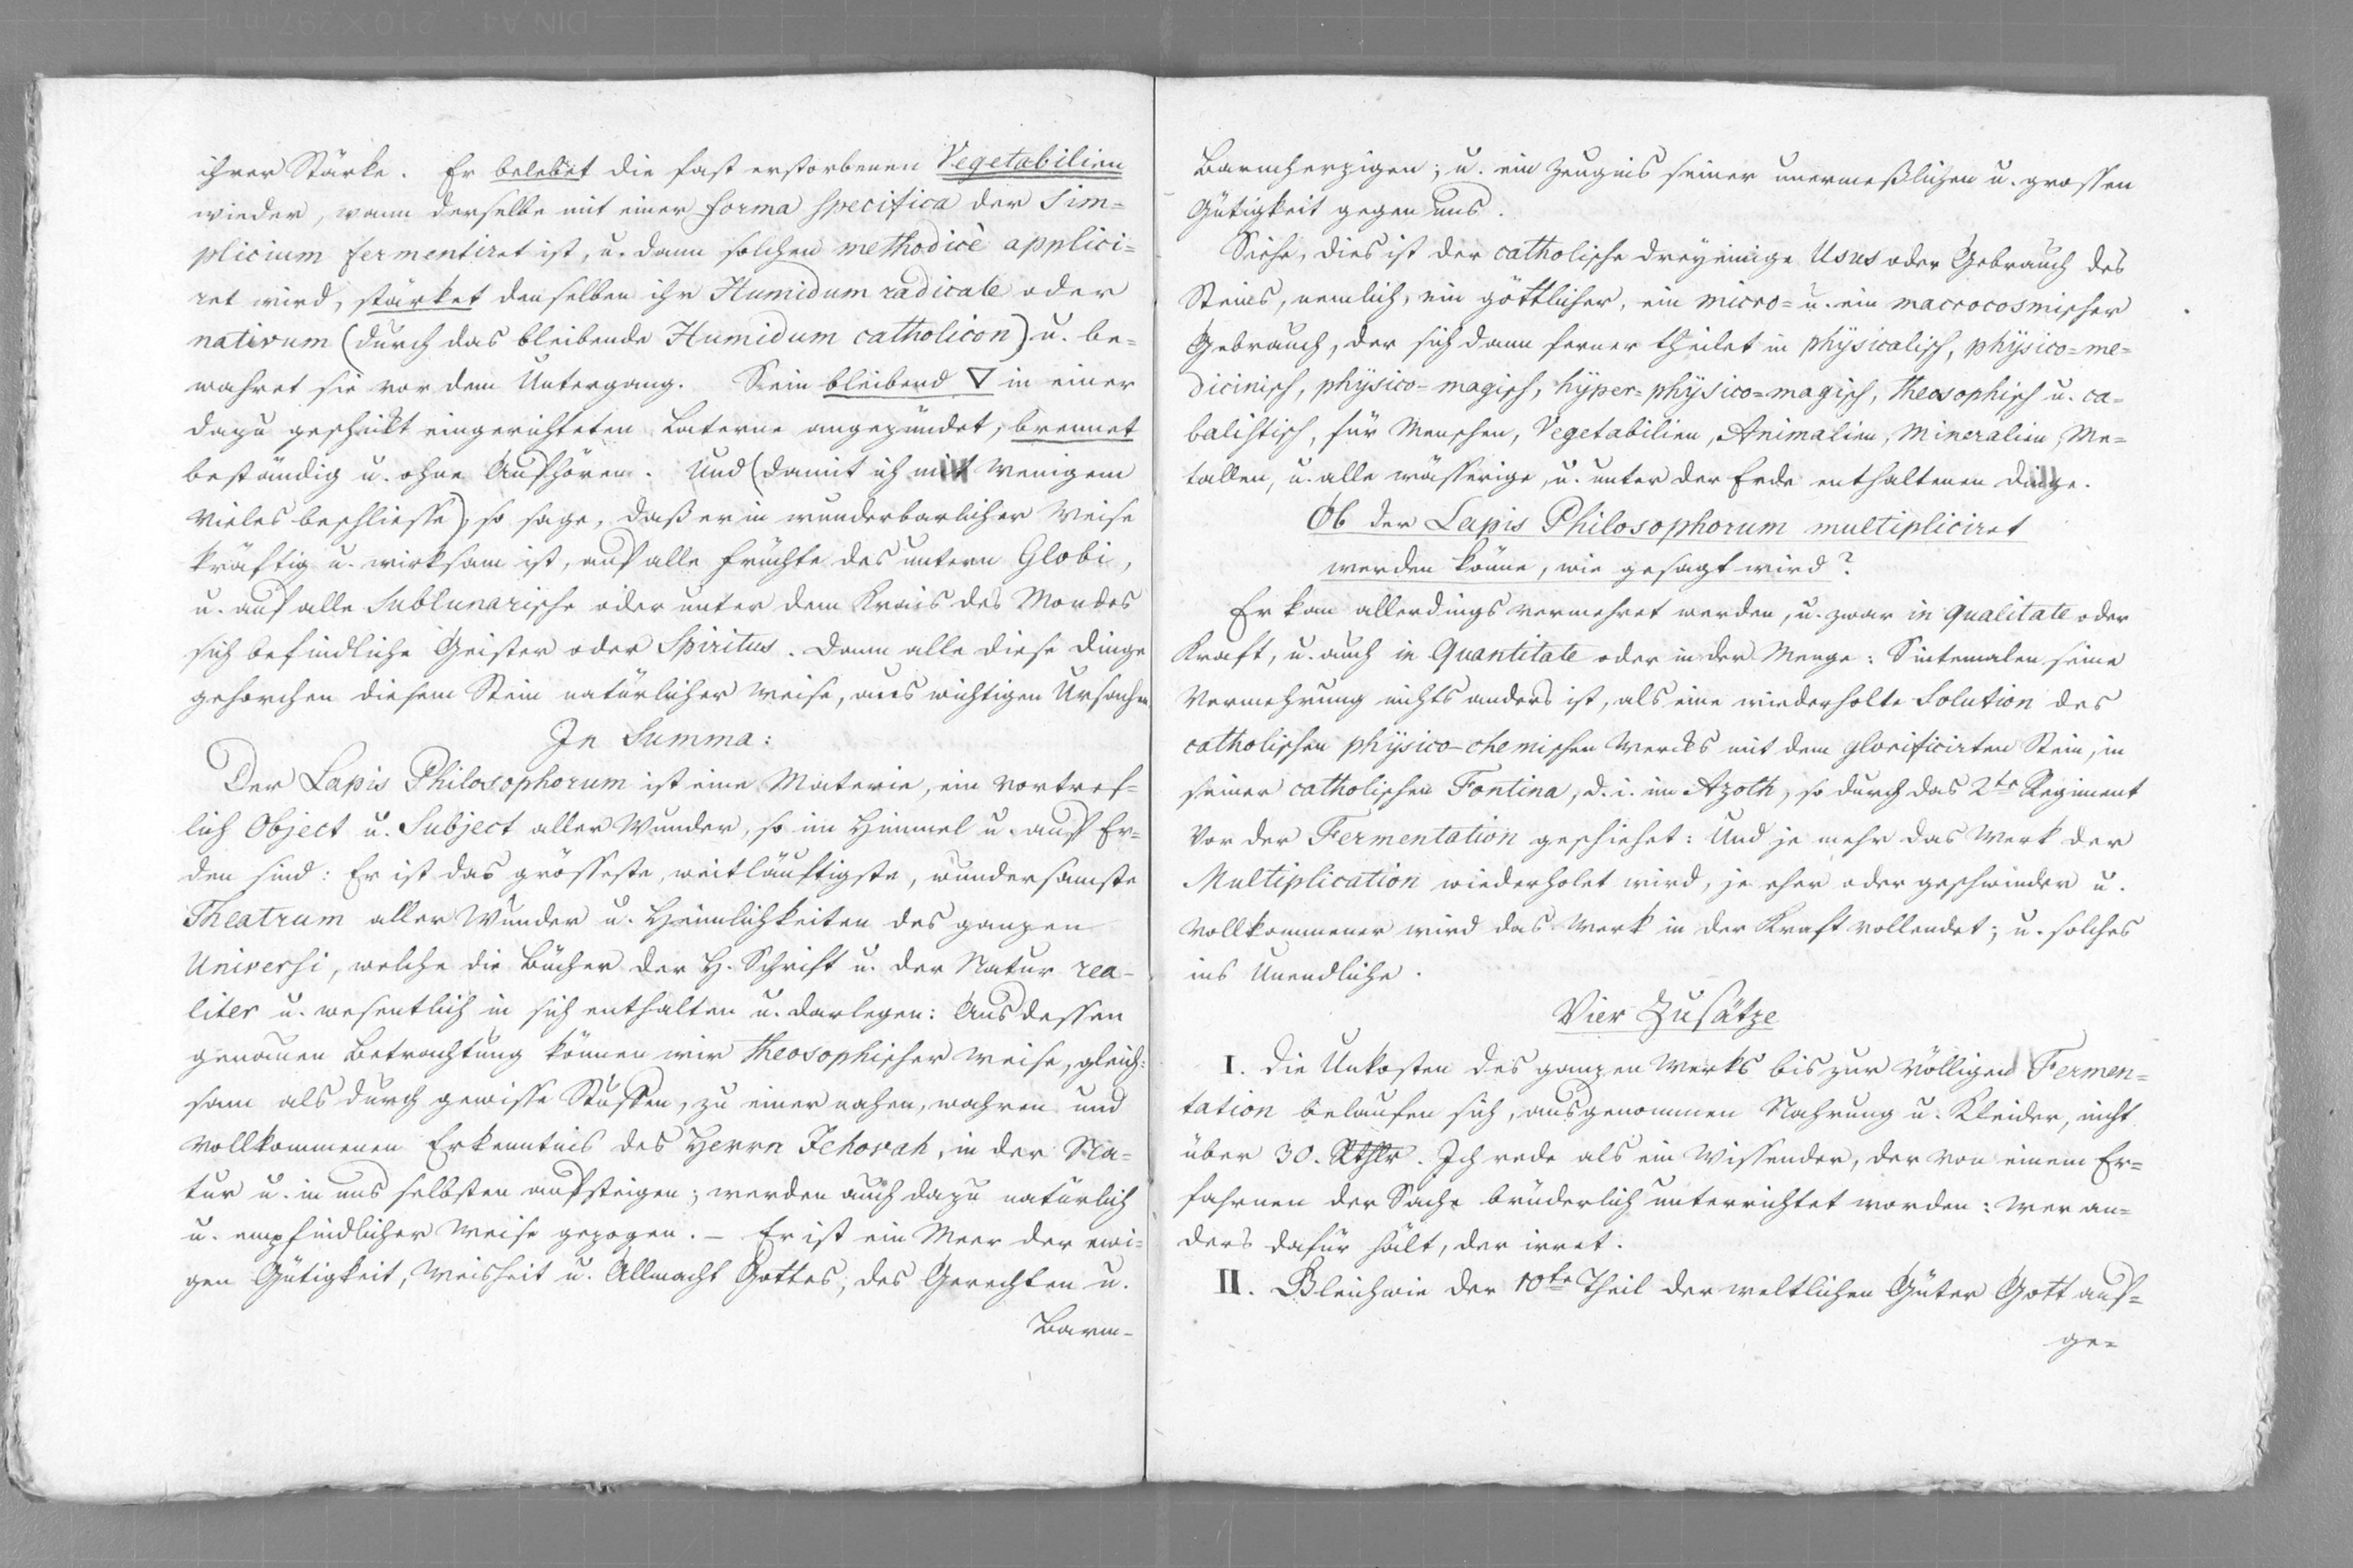 ihrer Stärke. Er belebet die fast erstorbenen Vegetabilien
wieder, wann derselbe mit einer forma specifica der Sim=
plicium fermentiret ist, u. dann solchen methodicè applici=
ret wird, stärket denselben ihr Humidum radicale oder
nativum (durch das bleibende Humidum catholicon) u. be=
wahret sie vor dem Untergang. Sein bleibend 🜄 in einer
dazu geschickt eingerichteten Laterne angezündet, brennet
beständig u. ohne Aufhören. Und (damit ich mit Wenigem
Vieles beschliesse) so sage, daß er in wunderbarlicher Weise
kräftig u. wirksam ist, auf alle Früchte des untern Globi,
u. auf alle Sublunarische oder unter dem Krais des Mondes
sich befindliche Geister oder Spiritus. Dann alle diese Dinge
gehorchen diesem Stein natürlicher Weise, aus wichtigen Ursachen
In Summa:
Der Lapis Philosophorum ist eine Materie, ein vortref=
lich Object u. Subject aller Wunder, so im Himmel u. auf Er=
den sind: Er ist das grösseste, weitläuftigste, wundersamste
Theatrum aller Wunder u. Heimlichkeiten des ganzen
Universi, welche die Bücher der H. Schrift u. der Natur rea-
liter u. wesentlich in sich enthalten u. darlegen: Aus dessen
genauen Betrachtung können wir theosophischer Weise, gleich=
sam als durch gewisse Stuffen, zu einer nahen, wahren und
vollkommenen Erkenntnis des Herrn Jehovah, in der Na=
tur u. in uns selbsten aufsteigen; werden auch dazu natürlich
u. empfindlicher Weise gezogen. – Er ist ein Meer der ewi=
gen Gütigkeit, Weisheit u. Allmacht Gottes, des Gerechten u.
Barm-
Barmherzigen; u. ein Zeugnis seiner unermeßlichen u. grossen
Gütigkeit gegen uns.
Siehe, dies ist der catholische dreyeinige Usus oder Gebrauch des
Steins, nemlich, ein göttlicher, ein micro= u. ein macrocosmischer
Gebrauch, der sich dann ferner theilet in physicalisch, physico=me=
dicinisch, physico-magisch, hyper=physico=magisch, theosophisch u. ca=
balistisch, für Menschen, Vegetabilien, Animalien, Mineralien, Me=
tallen, u. alle wässerige, u. unter der Erde enthaltenen Dinge.
Ob der Lapis Philosophorum multipliciret
werden könne, wie gesagt wird?
Er kan allerdings vermehret werden, u. zwar in qualitate oder
Kraft, u. auch in Quantitate oder in der Menge: Sintemalen seine
Vermehrung nichts anders ist, als eine wiederholte Solution des
catholischen physico-chemischen Wercks mit dem glorificirten Stein, in
seiner catholischen Fontina, d. i. im Azoth, so durch das 2te Regiment
vor der Fermentation geschiehet: Und je mehr das Werk der
Multiplication wiederholet wird, je eher oder geschwinder u.
vollkommener wird das Werk in der Kraft vollendet; u. solches
ins Unendliche.
Vier Zusätze
I. Die Unkosten des ganzen Werks bis zur völligen Fermen=
tation belaufen sich, ausgenommen Nahrung u. Kleider, nicht
über 30. Rthlr. Ich rede als ein Wissender, der von einem Er=
fahrnen der Sache brüderlich unterrichtet worden: wer an=
ders dafür hält, der irret.
II. Gleichwie der 10te Theil der weltlichen Güter Gott auf=
ge=